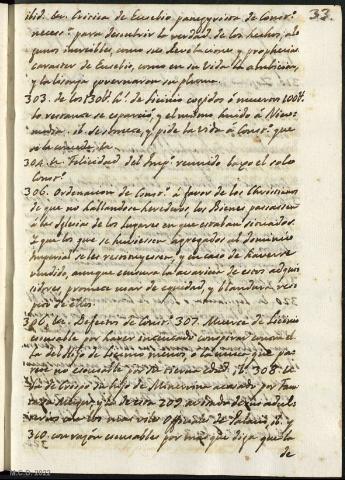 33.
ibid. ta. Critica de Eusebio panegyrista de Const.º
necess.ª para descubrir la verdad de los hechos, al-
gunos increibles, como sus Revelaciones, y prophecias
caracter de Eusebio, como en su vida la ambicion,
y la lisonja governaron su pluma.
303. de los 130U. h.s de Licinio cogidos ó muertos 100U.
lo restante se esparció, y el mismo huido á Nico-
media. ib. se somete, y pide la vida á Const.º que
se la concede. ta
304. ta. Felicidad del Imp.º reunido baxo el solo
Const.º
306. Ordenacion de Const.º á favor de los Christianos
de que no hallandose herederos, los Bienes passassen
á las Iglesias de los lugares en que estaban situados
Y que los que se huviessen agregados al dominio
Imperial se les restituyessen, y en caso de haverse
vendido, aunque censura la avaricia de estos adqui-
sidores, promete usar de equidad, y blandura res-
pecto de ellos.
306. ta. Defectos de Const.º 307. Muerte de Licinio
escusable por haver intentado conspirar contra él
la del hijo de Licinio menos, ó la unica que pas-
ib. 308. le
de Crispo su hijo de Minervina acusado por Faus-
ta su Muger, y la de esta 309 acusada de
con los mas viles Officiales de Palacio, ib. y
310. con razon escusables por mas que diga que la
de